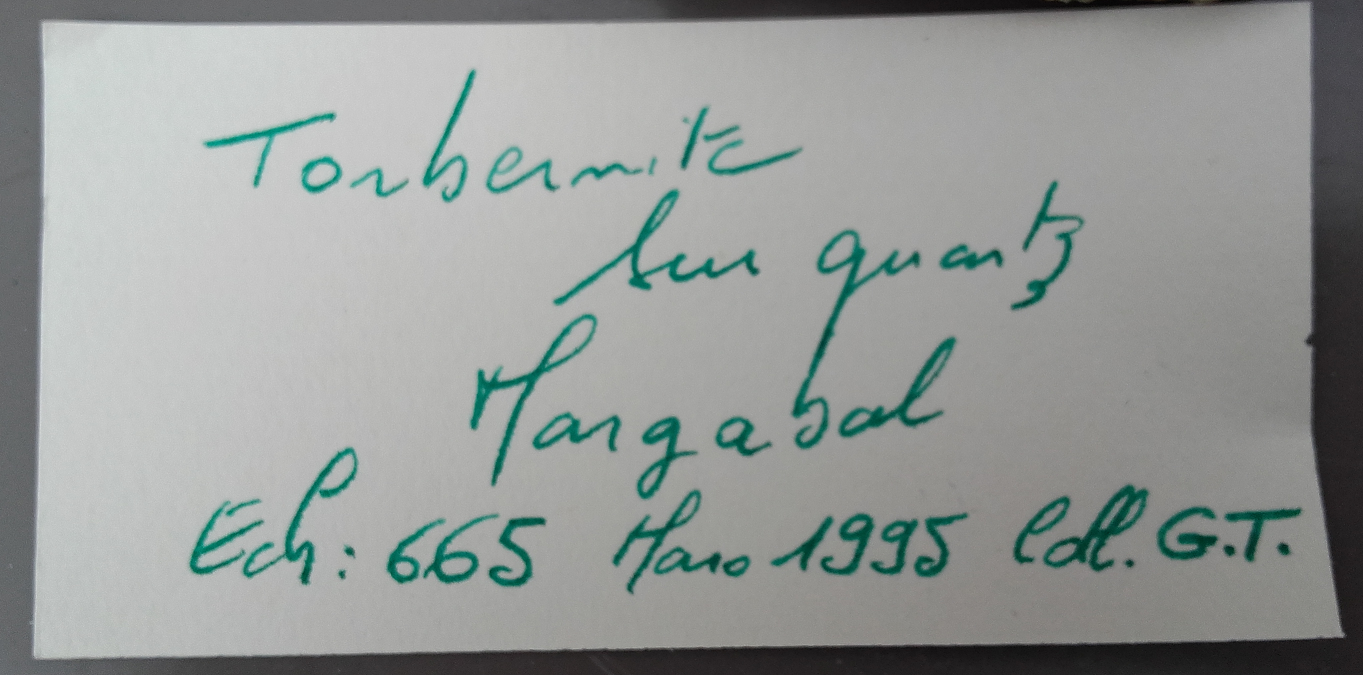 Torbernite
sur quartz
Margabal
Ech: 665 Mars 1995 Coll. G.T.